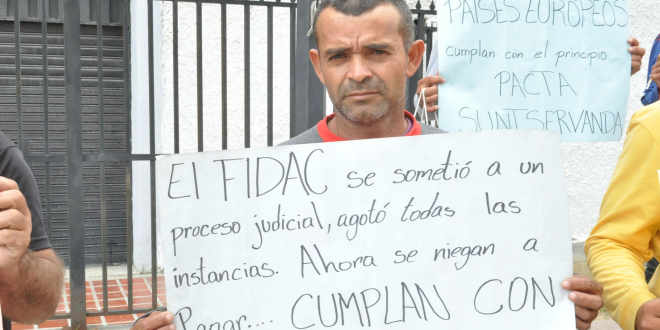 PAISES EUROPEOS
cumplan con el principio
PACTA
SUNT SERVANDA
El FIDAC se sometió a un
proceso judicial, agotó todas las
instancias. Ahora se niegan a
Pagar.... CUMPLAN CON